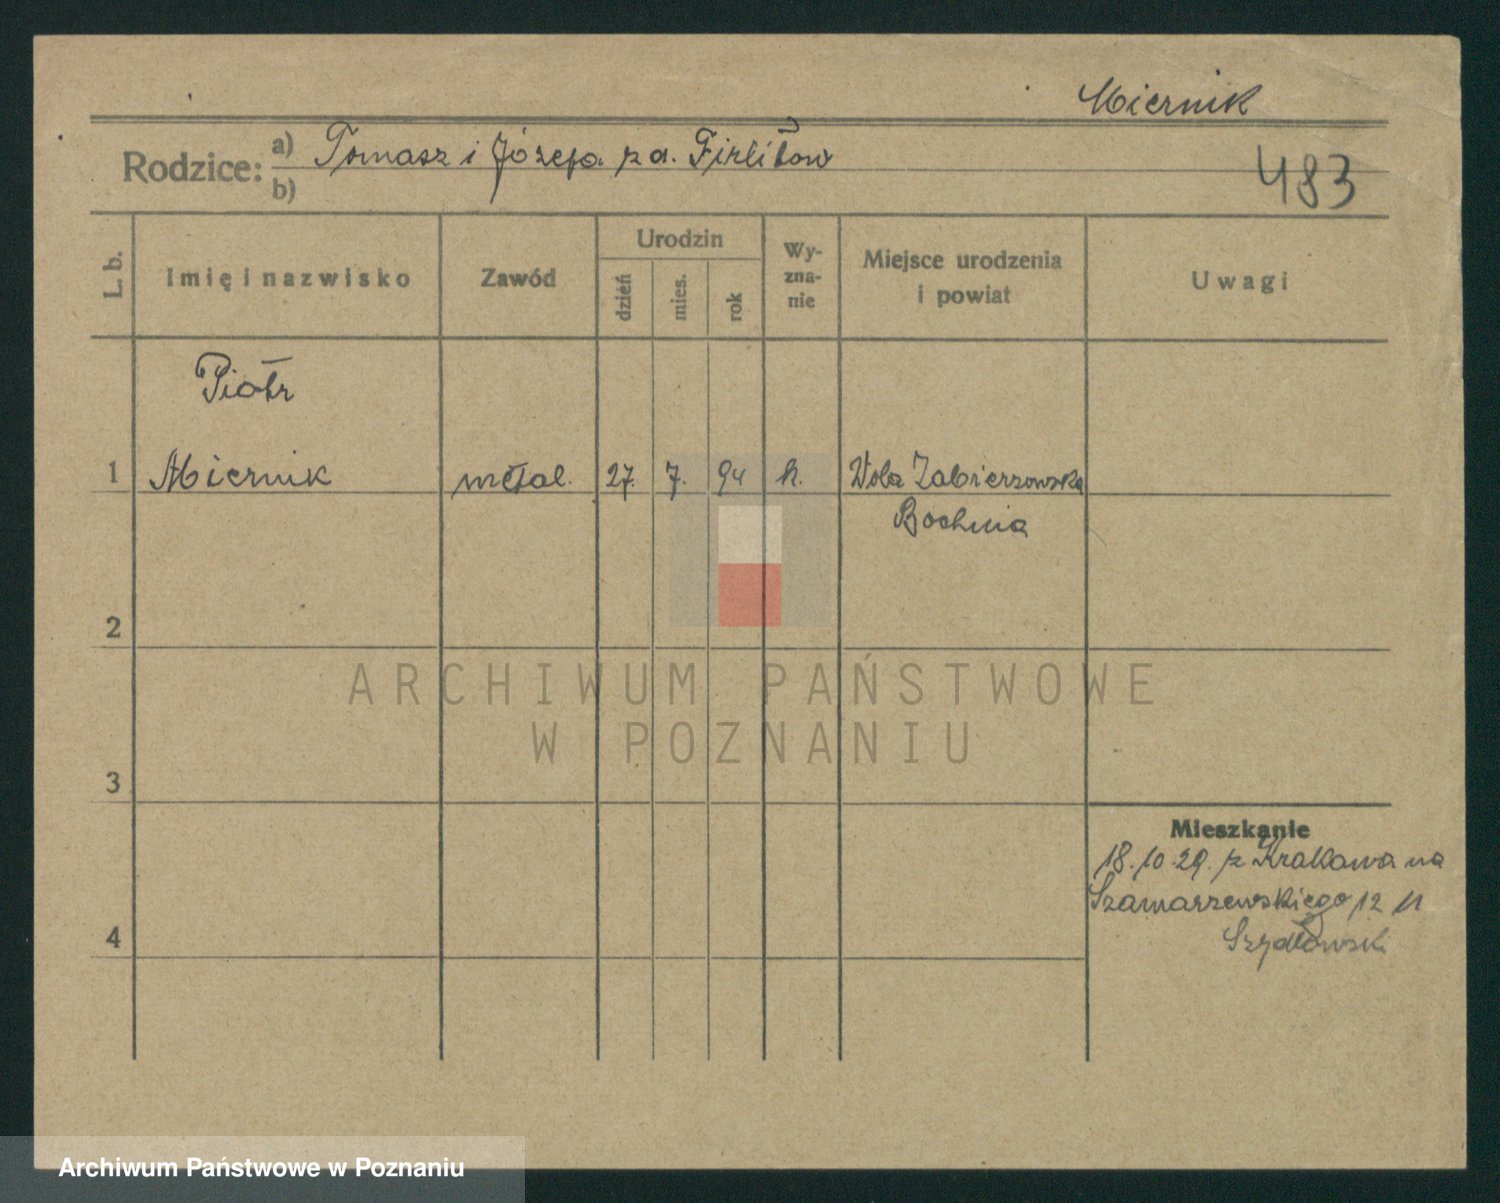 Miernik
Rodzice: a) Tomasz i Józefa z d. Firlitów
b)
483
L. b.
Imię i nazwisko
Zawód
Urodzin
dzień
mies.
rok
Wy-
zna-
nie
Miejsce urodzenia
i powiat
Uwagi
Piotr
1 Miernik metal. 27. 7. 94 k. Wola Zabierzowska
Bochnia
2
ARCHIWUM PAŃSTWOWE
W POZNANIU
3
Mieszkanie
18.10.29. z Krakowa na
Szamarzewskiego 12
4
Szydłowski
Archiwum Państwowe w Poznaniu